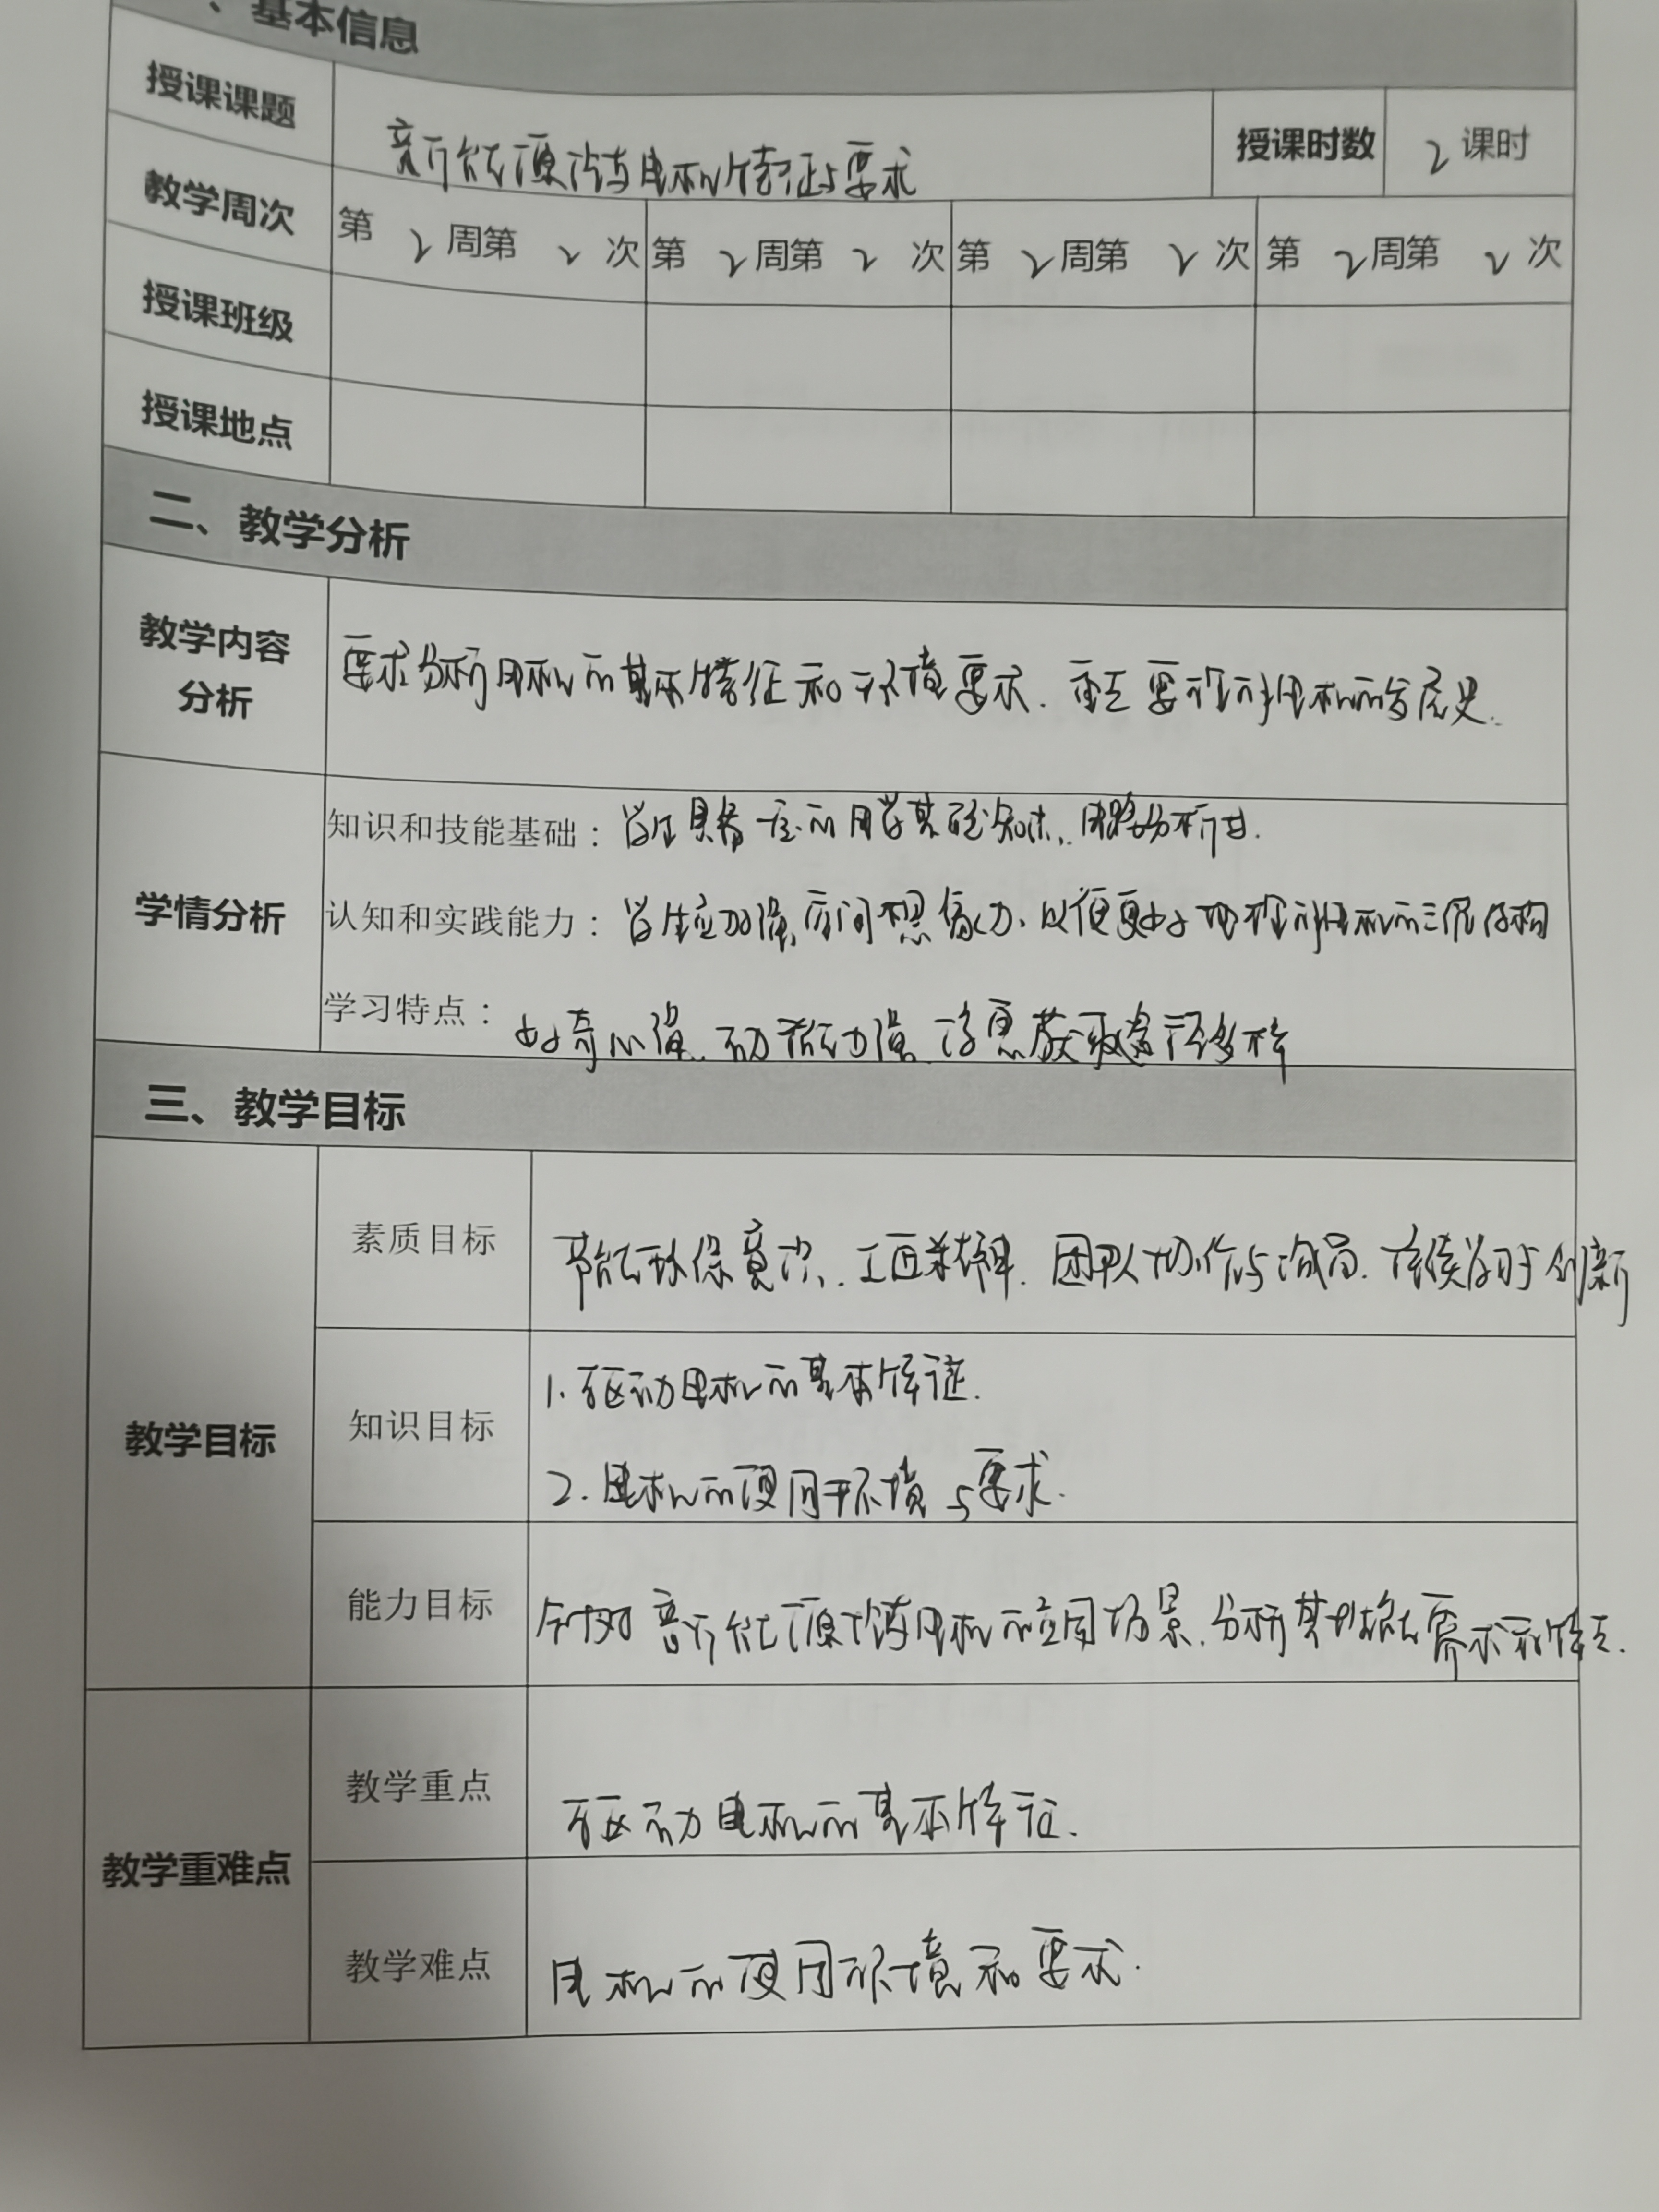 、基本信息
授课课题 新能源汽车电机特征与要求 授课时数 2 课时
教学周次 第 2 周第 2 次 第 2 周第 2 次 第 2 周第 2 次 第 2 周第 2 次
授课班级
授课地点
二、教学分析
教学内容
分析
要求分析电机的基本特征和环境要求. 重点要理解电机的发展史.
学情分析
知识和技能基础：学生具备一定的电学基础知识、电路分析等.
认知和实践能力：学生应加强空间想象力、以便更好地理解电机的三维结构
学习特点：好奇心强、动手能力强、信息获取途径多样
三、教学目标
教学目标
素质目标 节能环保意识、工匠精神. 团队协作与沟通. 持续学习与创新
知识目标 1. 驱动电机的基本特征.
2. 电机的使用环境与要求.
能力目标 针对新能源汽车电机的应用场景、分析其性能需求和特点.
教学重难点
教学重点 驱动电机的基本特征.
教学难点 电机的使用环境和要求.